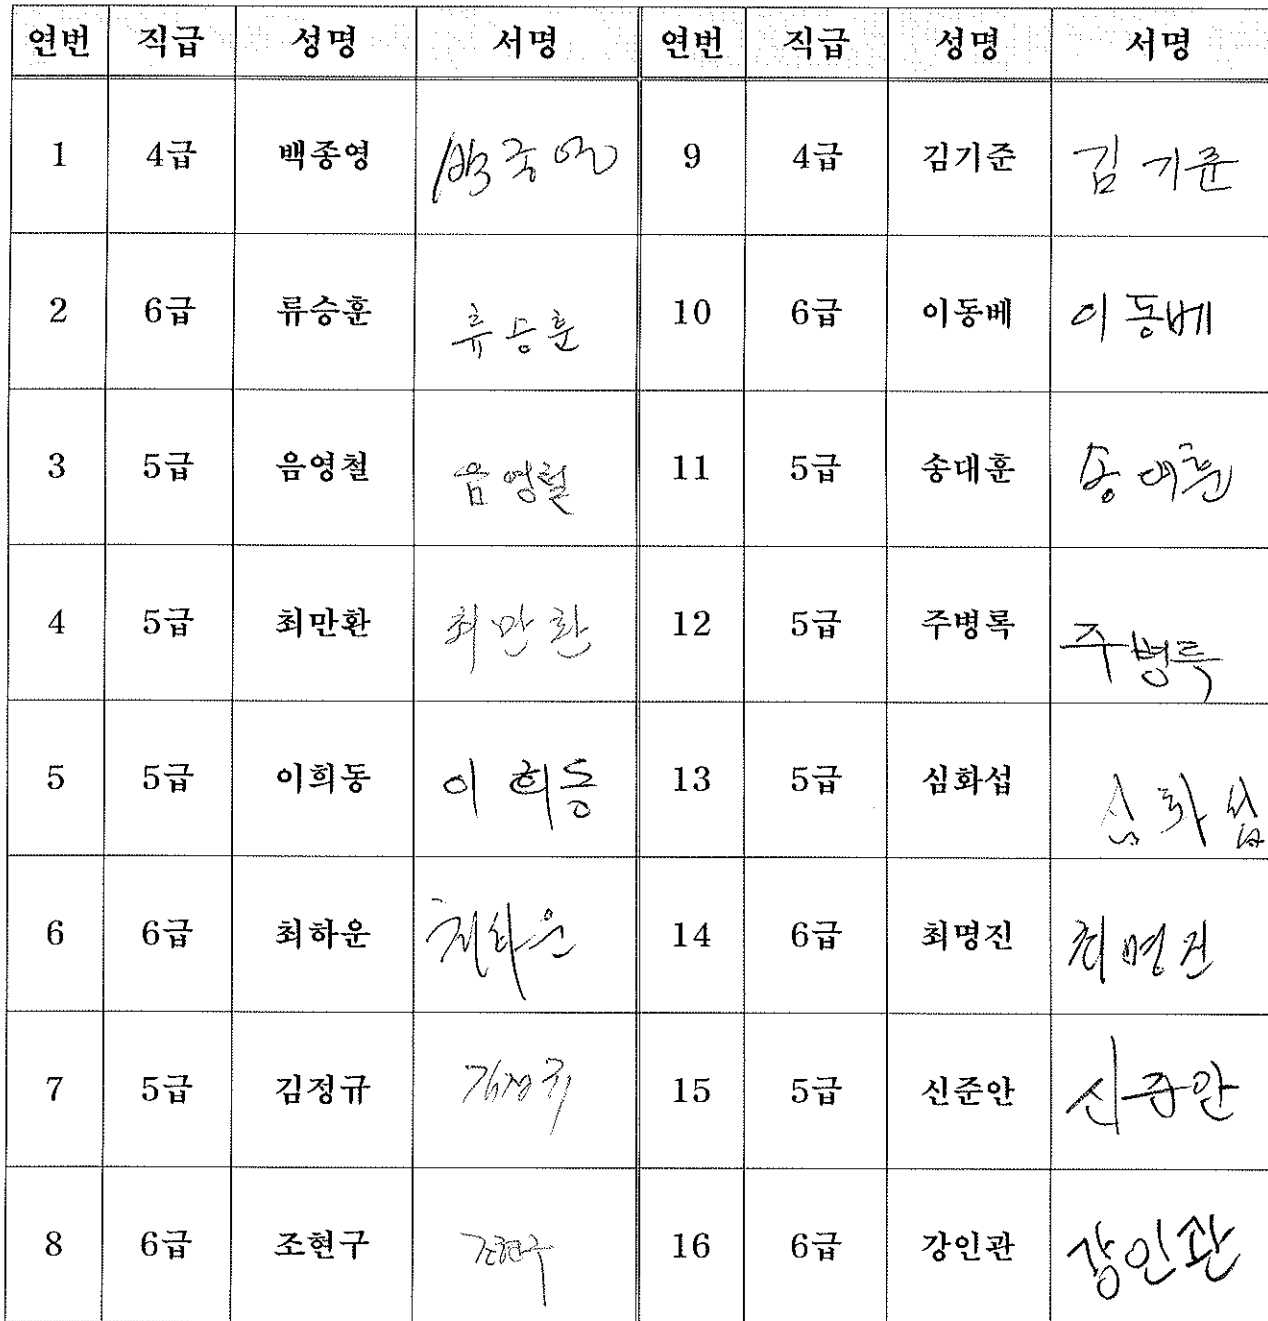 연번 직급 성명 서명 연번 직급 성명 서명
1 4급 백종영 9 4급 김기준 김기준
2 6급 류승훈 류승훈 10 6급 이동베 이동베
3 5급 음영철 음영철 11 5급 송대훈 송대훈
4 5급 최만환 최만환 12 5급 주병록 주병록
5 5급 이희동 이희동 13 5급 심화섭 심화섭
6 6급 최하운 최하운 14 6급 최명진 최명진
7 5급 김정규 김정규 15 5급 신준안 신준안
8 6급 조현구 조현구 16 6급 강인관 강인관